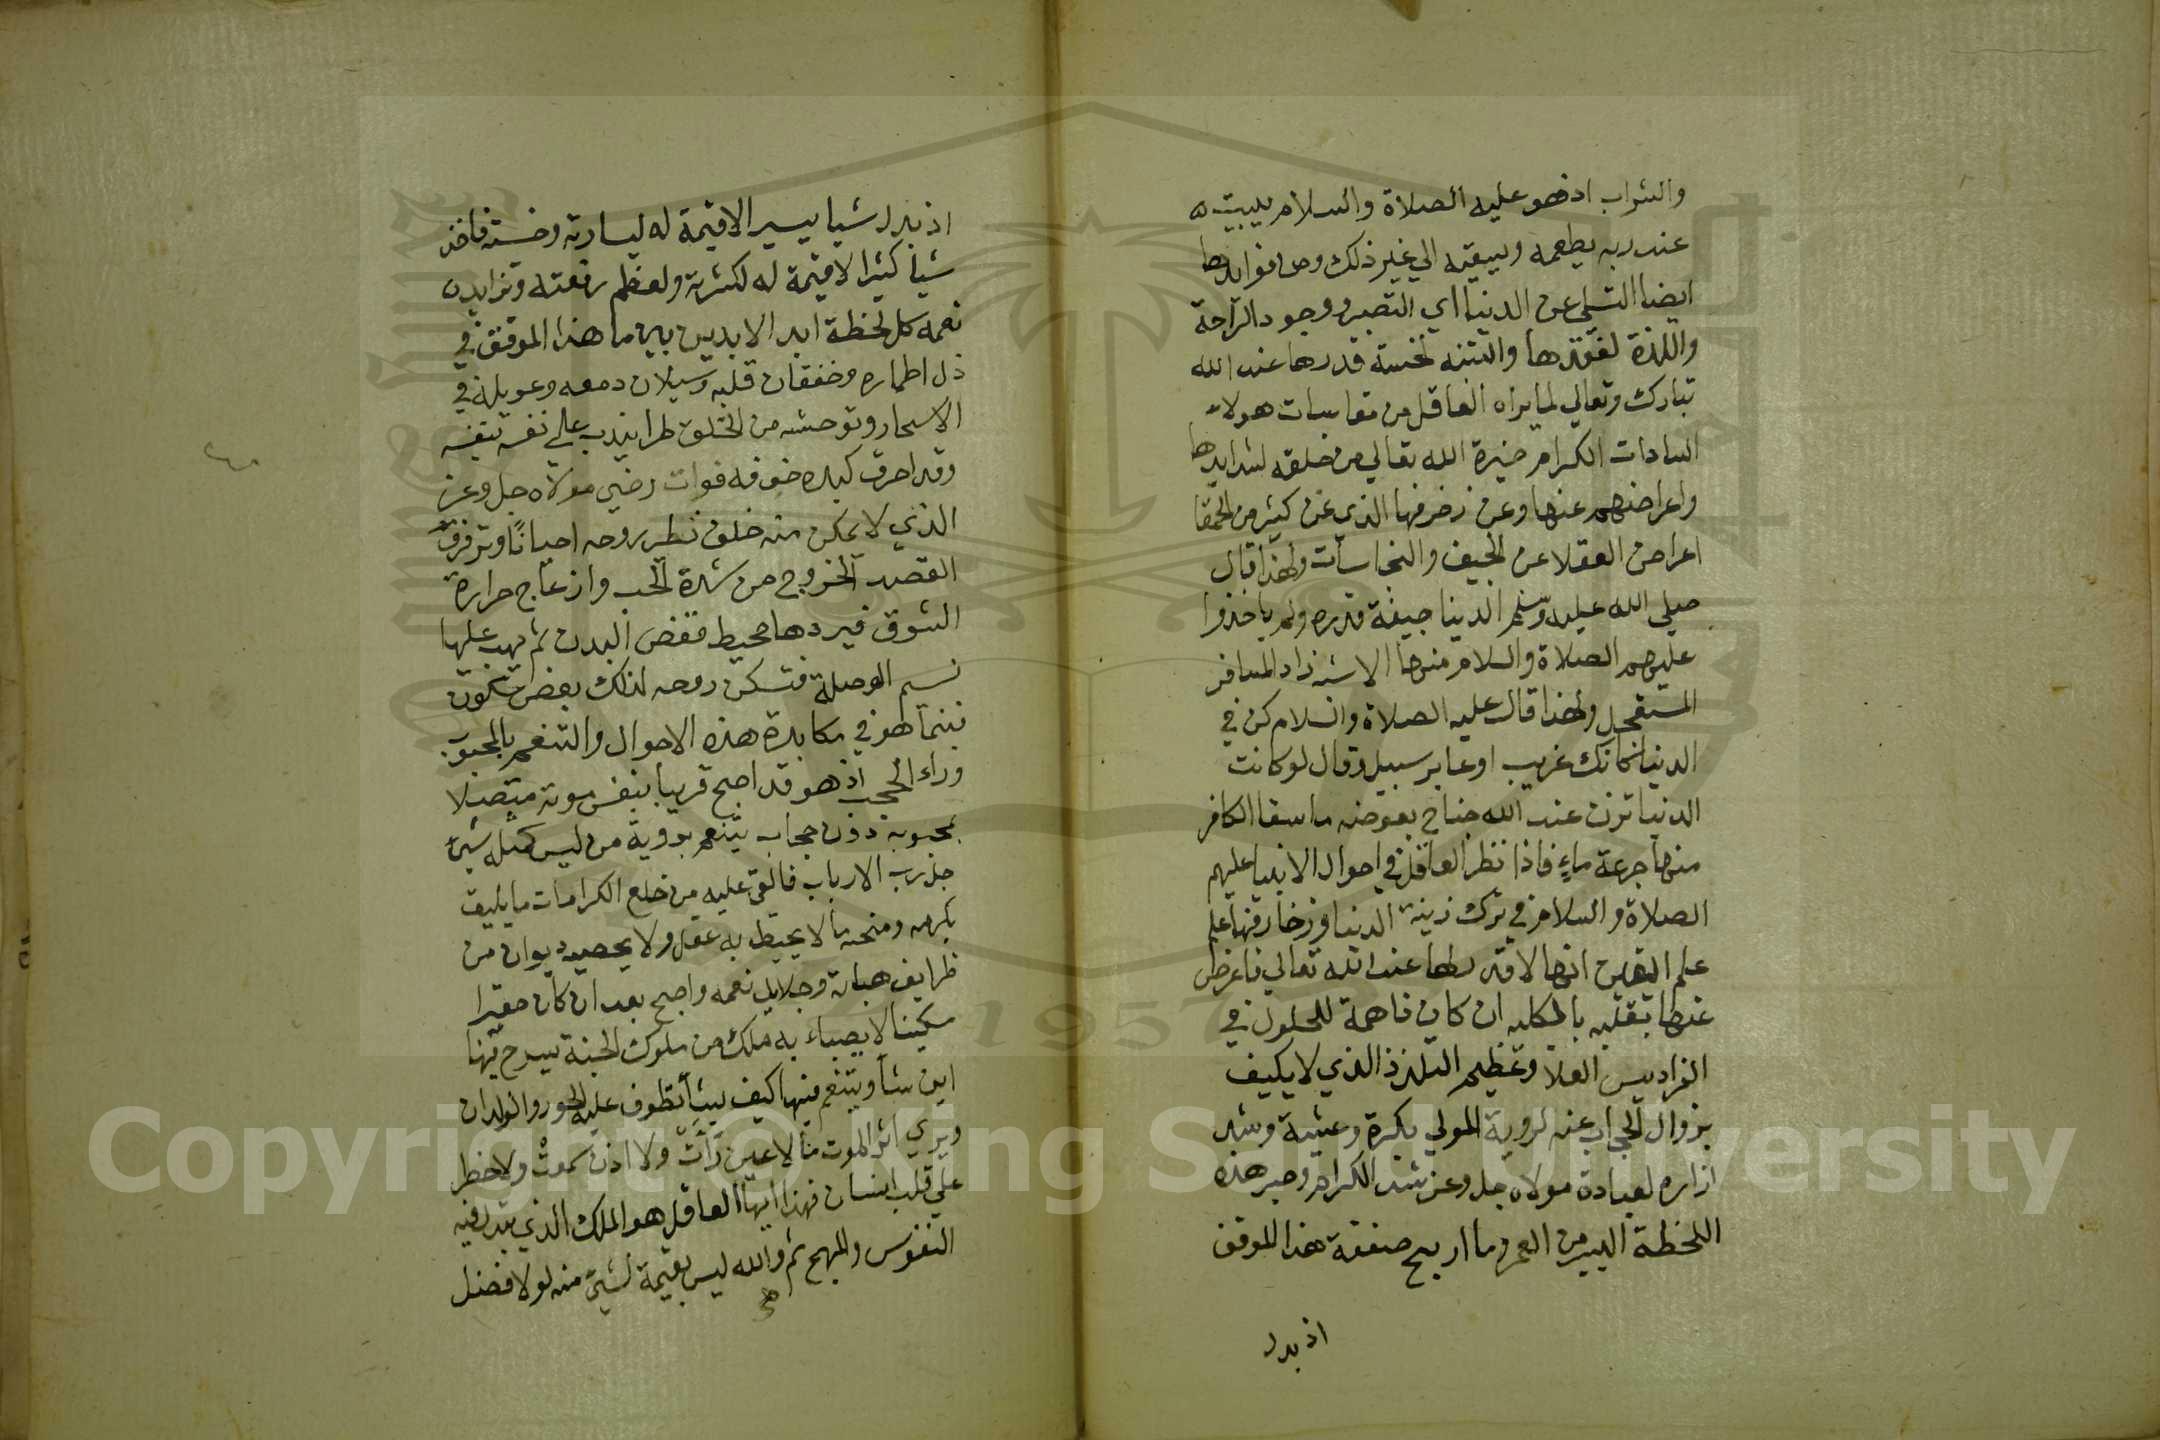 والشراب اذ هو عليه الصلاة والسلام يبيت
عند ربه يطعمه ويسقيه الي غير ذلك ومن فوايدها
ايضا التسلي عن الدنيا اي التصبر ووجود الراحة
واللذة لفقدها والتنبه لخسة قدرها عند الله
تبارك وتعالي لما يراه العاقل من مقاسات هولاء
السادات الكرام خيرة الله تعالي من خلقه لشدايدها
واعراضهم عنها وعن زخرفها الذي غر كثير من الحمقا
اعراض العقلا عن الجيف والنجاسات ولهذا قال
صلي الله عليه وسلم الدنيا جيفة قذره ولم ياخذوا
عليهم الصلاة والسلام منها الا شبه زاد المسافر
المستعجل ولهذا قال عليه الصلاة والسلام كن في
الدنيا كانك غريب او عابر سبيل وقال لو كانت
الدنيا تزن عند الله جناح بعوضه ما سقا الكافر
منها جرعة ماءٍ فاذا نظر العاقل في احوال الانبيا عليهم
الصلاة والسلام في ترك زينة الدنيا وزخارفها علم
علم اليقين انها لا قدر لها عند الله تعالي فاعرض
عنها بقلبه بالكليه ان كان ذا همة للحلول في
الفراديس العلا وعظيم التلذذ الذي لا يكيف
بزوال الحجاب عنه لروية المولي بكرة وعشية وشد
ازاره لعبادة مولاه جل وعز شد الكرام وصبر هذه
اللحظة اليسير من العمر ما اربح صفقة هذا الموفق
اذ بدل
اذ بدل شيا يسير الا قيمة له ليسارته وخسته فاخذ
شيأ كثيرا لا قيمة له لكثرته ولعظم رفعته وتزايد
نعمه كل لحظة ابد الابدين بين ما هذا الموفق في
ذل اطماره وخفقان قلبه وسيلان دمعه وعويله في
الاسحار وتوحشه من الخلق طرا يندب علي نفسه بنفسه
وقد احرق كبده خوفه فوات رضي مولاه جل وعز
الذي لا يمكن منه خلف تطير روحه احيانًا وترفرف
القصد الخروج من شدة الحب وازعاج حرارة
الشوق فيردها محيط قفص البدن ثم يهب عليها
نسيم الوصلة فتسكن روحه لذلك بعض سكون
فبينما هو في مكابدة هذه الاحوال والتنعم بالمحبوب
وراء الحجب اذ هو قد اصبح قريبا بنفس موته متصلا
بمحبوبه دون حجاب يتنعم بروية من ليس كمثله شيء
جل رب الارباب فالقي عليه من خلع الكرامات ما يليق
بكرمه ومنحه ما لا يحيط به عقل ولا يحصيه ديوان من
ظرايف هباته وجلايل نعمه واصبح بعد ان كان حقيرا
مسكينا لا يعباء به ملك من ملوك الجنة يسرح فيها
اين شأ ويتنعم فيها كيف يشأ تطوف عليه الحور والولدان
ويري اثر الموت ما لا عين رأت ولا اذن سمعت ولا خطر
علي قلب انسان فهذا ايها العاقل هو الملك الذي تبذل فيه
النفوس والمهج ثم والله ليس بقيمة لشيء منه لولا فضل
Copyright © King Saud University
1957